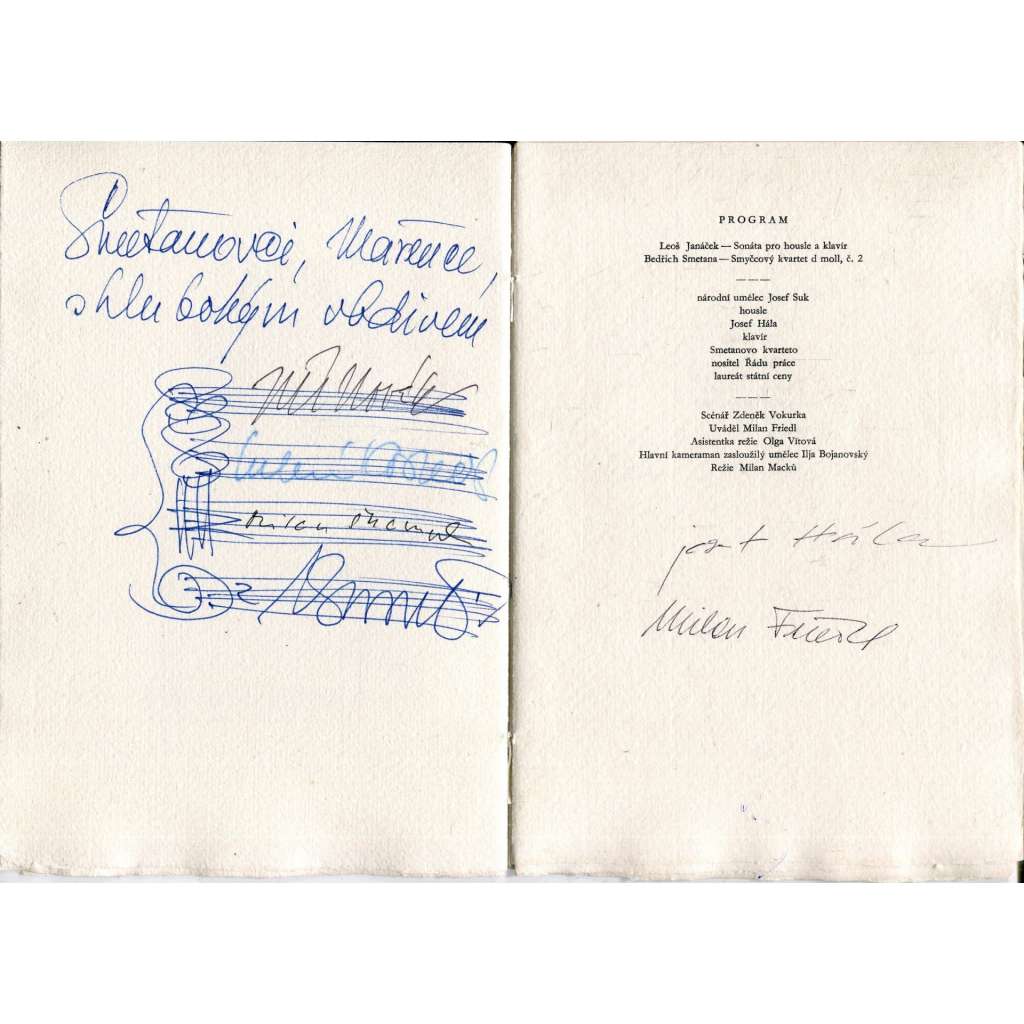 Smetanovci, Mařence,
s hlubokým obdivem
Jiří Novák
Milan Škampa
PROGRAM
Leoš Janáček — Sonáta pro housle a klavír
Bedřich Smetana — Smyčcový kvartet d moll, č. 2
národní umělec Josef Suk
housle
Josef Hála
klavír
Smetanovo kvarteto
nositel Řádu práce
laureát státní ceny
Scénář Zdeněk Vokurka
Uváděl Milan Friedl
Asistentka režie Olga Vítová
Hlavní kameraman zasloužilý umělec Ilja Bojanovský
Režie Milan Macků
Josef Hála
Milan Friedl